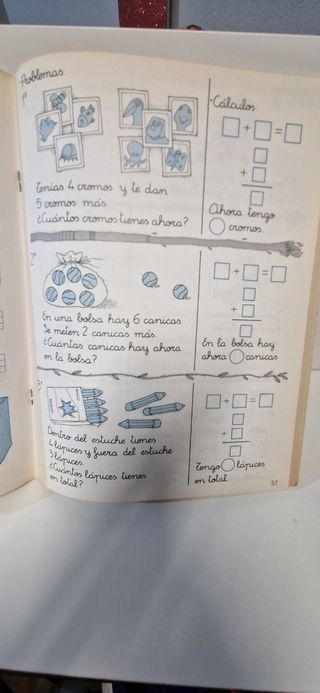 Problemas:
1º
Tenías 4 cromos y te dan
5 cromos más.
¿Cuántos cromos tienes ahora?
Cálculos:
+ =
+
Ahora tengo
cromos.
2º
En una bolsa hay 6 canicas.
Se meten 2 canicas más.
¿Cuántas canicas hay ahora
en la bolsa?
+ =
+
En la bolsa hay
ahora canicas
3º
Dentro del estuche tienes
4 lápices y fuera del estuche
3 lápices.
¿Cuántos lápices tienes
en total?
+ =
+
Tengo lápices
en total.
31